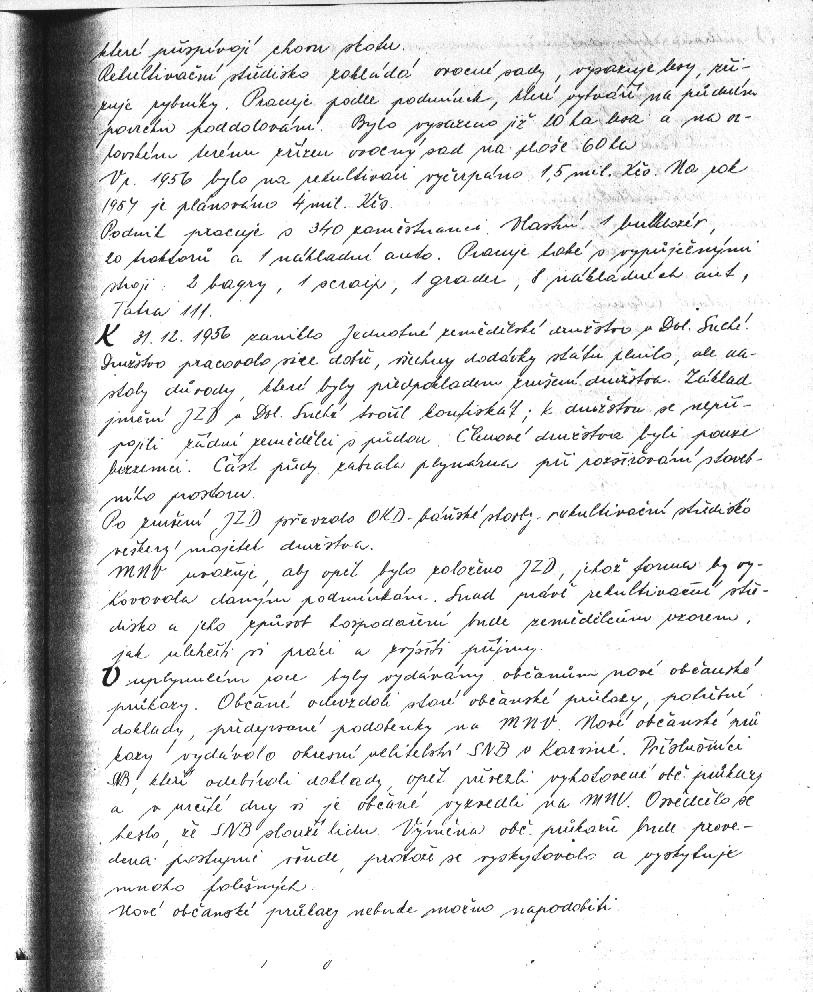 které přispívají chovu skotu.
Rekultivační středisko zakládá ovocné sady, vysazuje lesy, zři-
zuje rybníky. Pracuje podle podmínek, které vytváří na půdním
povrchu poddolování. Bylo vysazeno již 20 ha lesa a na or-
lovském terénu zřízen ovocný sad na ploše 60 ha
V r. 1956 bylo na rekultivaci vyčerpáno 1,5 mil. Kčs. Na rok
1957 je plánováno 4 mil. Kčs.
Podnik pracuje s 340 zaměstnanci. Vlastní 1 buldozér,
20 traktorů a 1 nákladní auto. Pracuje také s vypůjčenými
stroji: 2 bagry, 1 scraip, 1 grader, 8 nákladních aut,
Tatra 111.
K 31.12. 1956 zaniklo Jednotné zemědělské družstvo v Dol. Suché.
Družstvo pracovalo sice dobře, všechny dodávky státu plnilo, ale na-
staly důvody, které byly předpokladem zrušení družstva. Základ
jmění JZD v Dol. Suché tvořil konfiskát; k družstvu se nepři-
pojili žádní zemědělci s půdou. Členové družstva byli pouze
bezzemci. Část půdy zabrala plynárna při rozšiřování staveb-
ního prostoru.
Po zrušení JZD převzalo OKD-báňské stavby-rekultivační středisko
veškerý majetek družstva.
MNV uvažuje, aby opět bylo založeno JZD, jehož forma by vy-
hovovala daným podmínkám. Snad právě rekultivační stře-
disko a jeho způsob hospodaření bude zemědělcům vzorem,
jak ulehčiti si práci a zvýšiti příjmy.
V uplynulém roce byly vydávány občanům nové občanské
průkazy. Občané odevzdali staré občanské průkazy, potřebné
doklady, předepsané podobenky na MNV. Nové občanské prů
kazy vydávalo okresní velitelství SNB v Karviné. Příslušníci
SNB, kteří odebírali doklady, opět přivezli vyhotovené obč. průkazy
a v určité dny si je občané vyzvedli na MNV. Osvědčilo se
heslo, že SNB slouží lidu. Výměna obč. průkazů bude prove-
dena postupně všude, protože se vyskytovalo a vyskytuje
mnoho falešných.
Nové občanské průkazy nebude možno napodobiti.